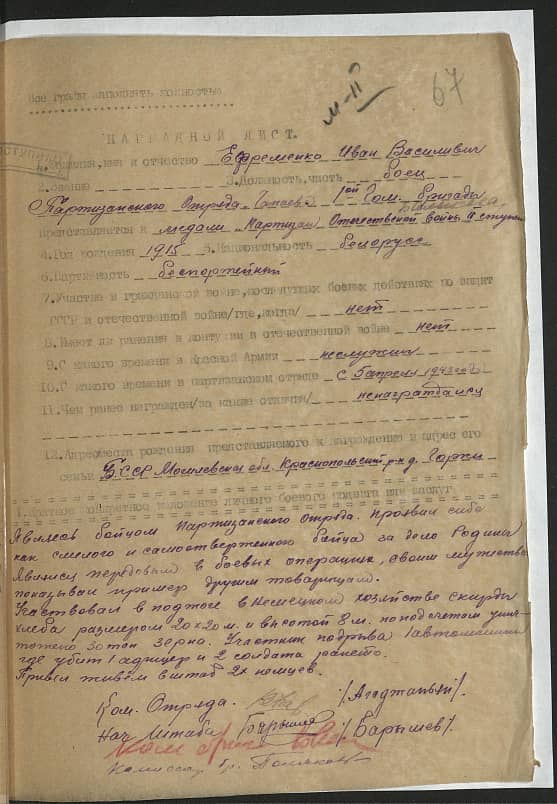 М-П
67
Все графы заполнять полностью
НАГРАДНОЙ ЛИСТ.
1. Фамилия, имя и отчество Ефременко Иван Василивич
2. Звание 3. Должность, часть боец
Партизанского Отряда 1ой Гом. бригады
Представляется к медали "Партизан Отечественной войны II ступени
4. Год рождения 1915 5. Национальность белорусс
6. Партийность беспортейный
7. Участие в гражданской войне, последующих боевых действиях по защит
СССР и отечественной войне/где, когда/ нет
8. Имеет ли ранения и контузии в отечественной войне нет
9. С какого времени в Красной Армии неслужил
10. С какого времени в партизанском отряде с 5 апреля
11. Чем ранее награжден/за какие отличия/ ненагражда
12. Адрес места рождения представляемого к награждению и адрес его
семьи БССР Могилевская обл. Краснопольский р-н д. Горки
1. Краткое конкретное изложение личного боевого подвига или заслуг
Являясь бойцом Партизанского Отряда. Проявил себя
как смелого и самоотверженного бойца за дело Родины
Являлся передовым в боевых операциях, своим мужество
показывал пример другим товарищам.
Участвовал в поджоге в Немецком хозяйстве скирды
хлеба размером 20х20 м. и высотой 8 м. по подсчетам унич-
тожено 30 тон зерна. Участник подрыва 1 автомашины
где убит 1 афицер и 2 солдата рането.
Привел живьём в штаб 2х немцев.
Ком. Отряда. /Агаджаньян/.
Нач. Штаба /Барышев/.
Ком
Комиссар бр.